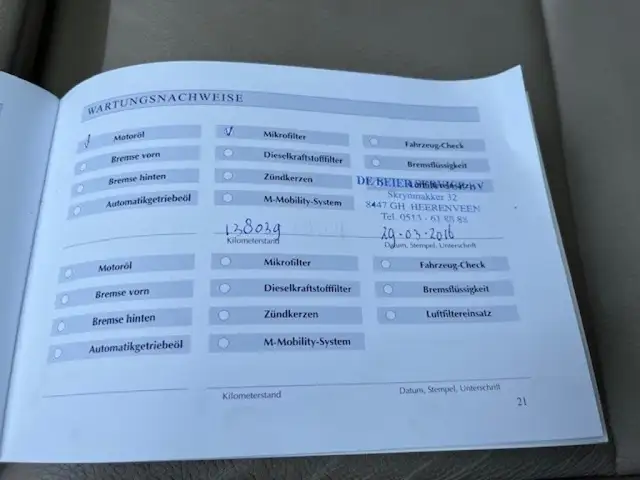 WARTUNGSNACHWEISE
Motoröl
Mikrofilter
Fahrzeug-Check
Bremse vorn
Dieselkraftstofffilter
Bremsflüssigkeit
Bremse hinten
Zündkerzen
Automatikgetriebeöl
M-Mobility-System
DE BEIER SERVICE B.V
Skrynmakker 32
8447 GH HEERENVEEN
Tel. 0513 - 61 88 88
138039
29-03-2016
Kilometerstand
Datum, Stempel, Unterschrift
Motoröl
Mikrofilter
Fahrzeug-Check
Bremse vorn
Dieselkraftstofffilter
Bremsflüssigkeit
Bremse hinten
Zündkerzen
Luftfiltereinsatz
Automatikgetriebeöl
M-Mobility-System
Kilometerstand
Datum, Stempel, Unterschrift
21